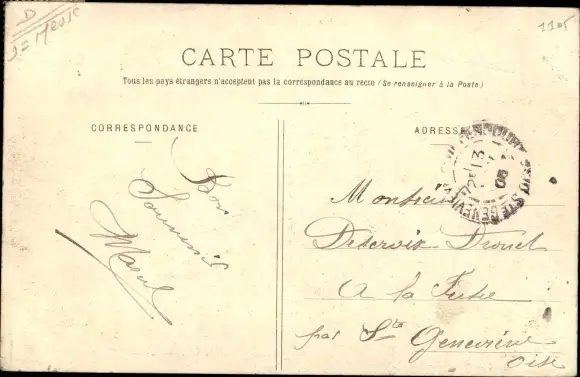 D
J = Meuse
1105
CARTE POSTALE
Tous les pays étrangers n'acceptent pas la correspondance au recto (Se renseigner à la Poste)
CORRESPONDANCE
ADRESSE
Bon
Souvenir
Marcel
13
05
STE GENEVIÈVE
Monsieur
Drouet
A la
par Ste Geneviève
Oise